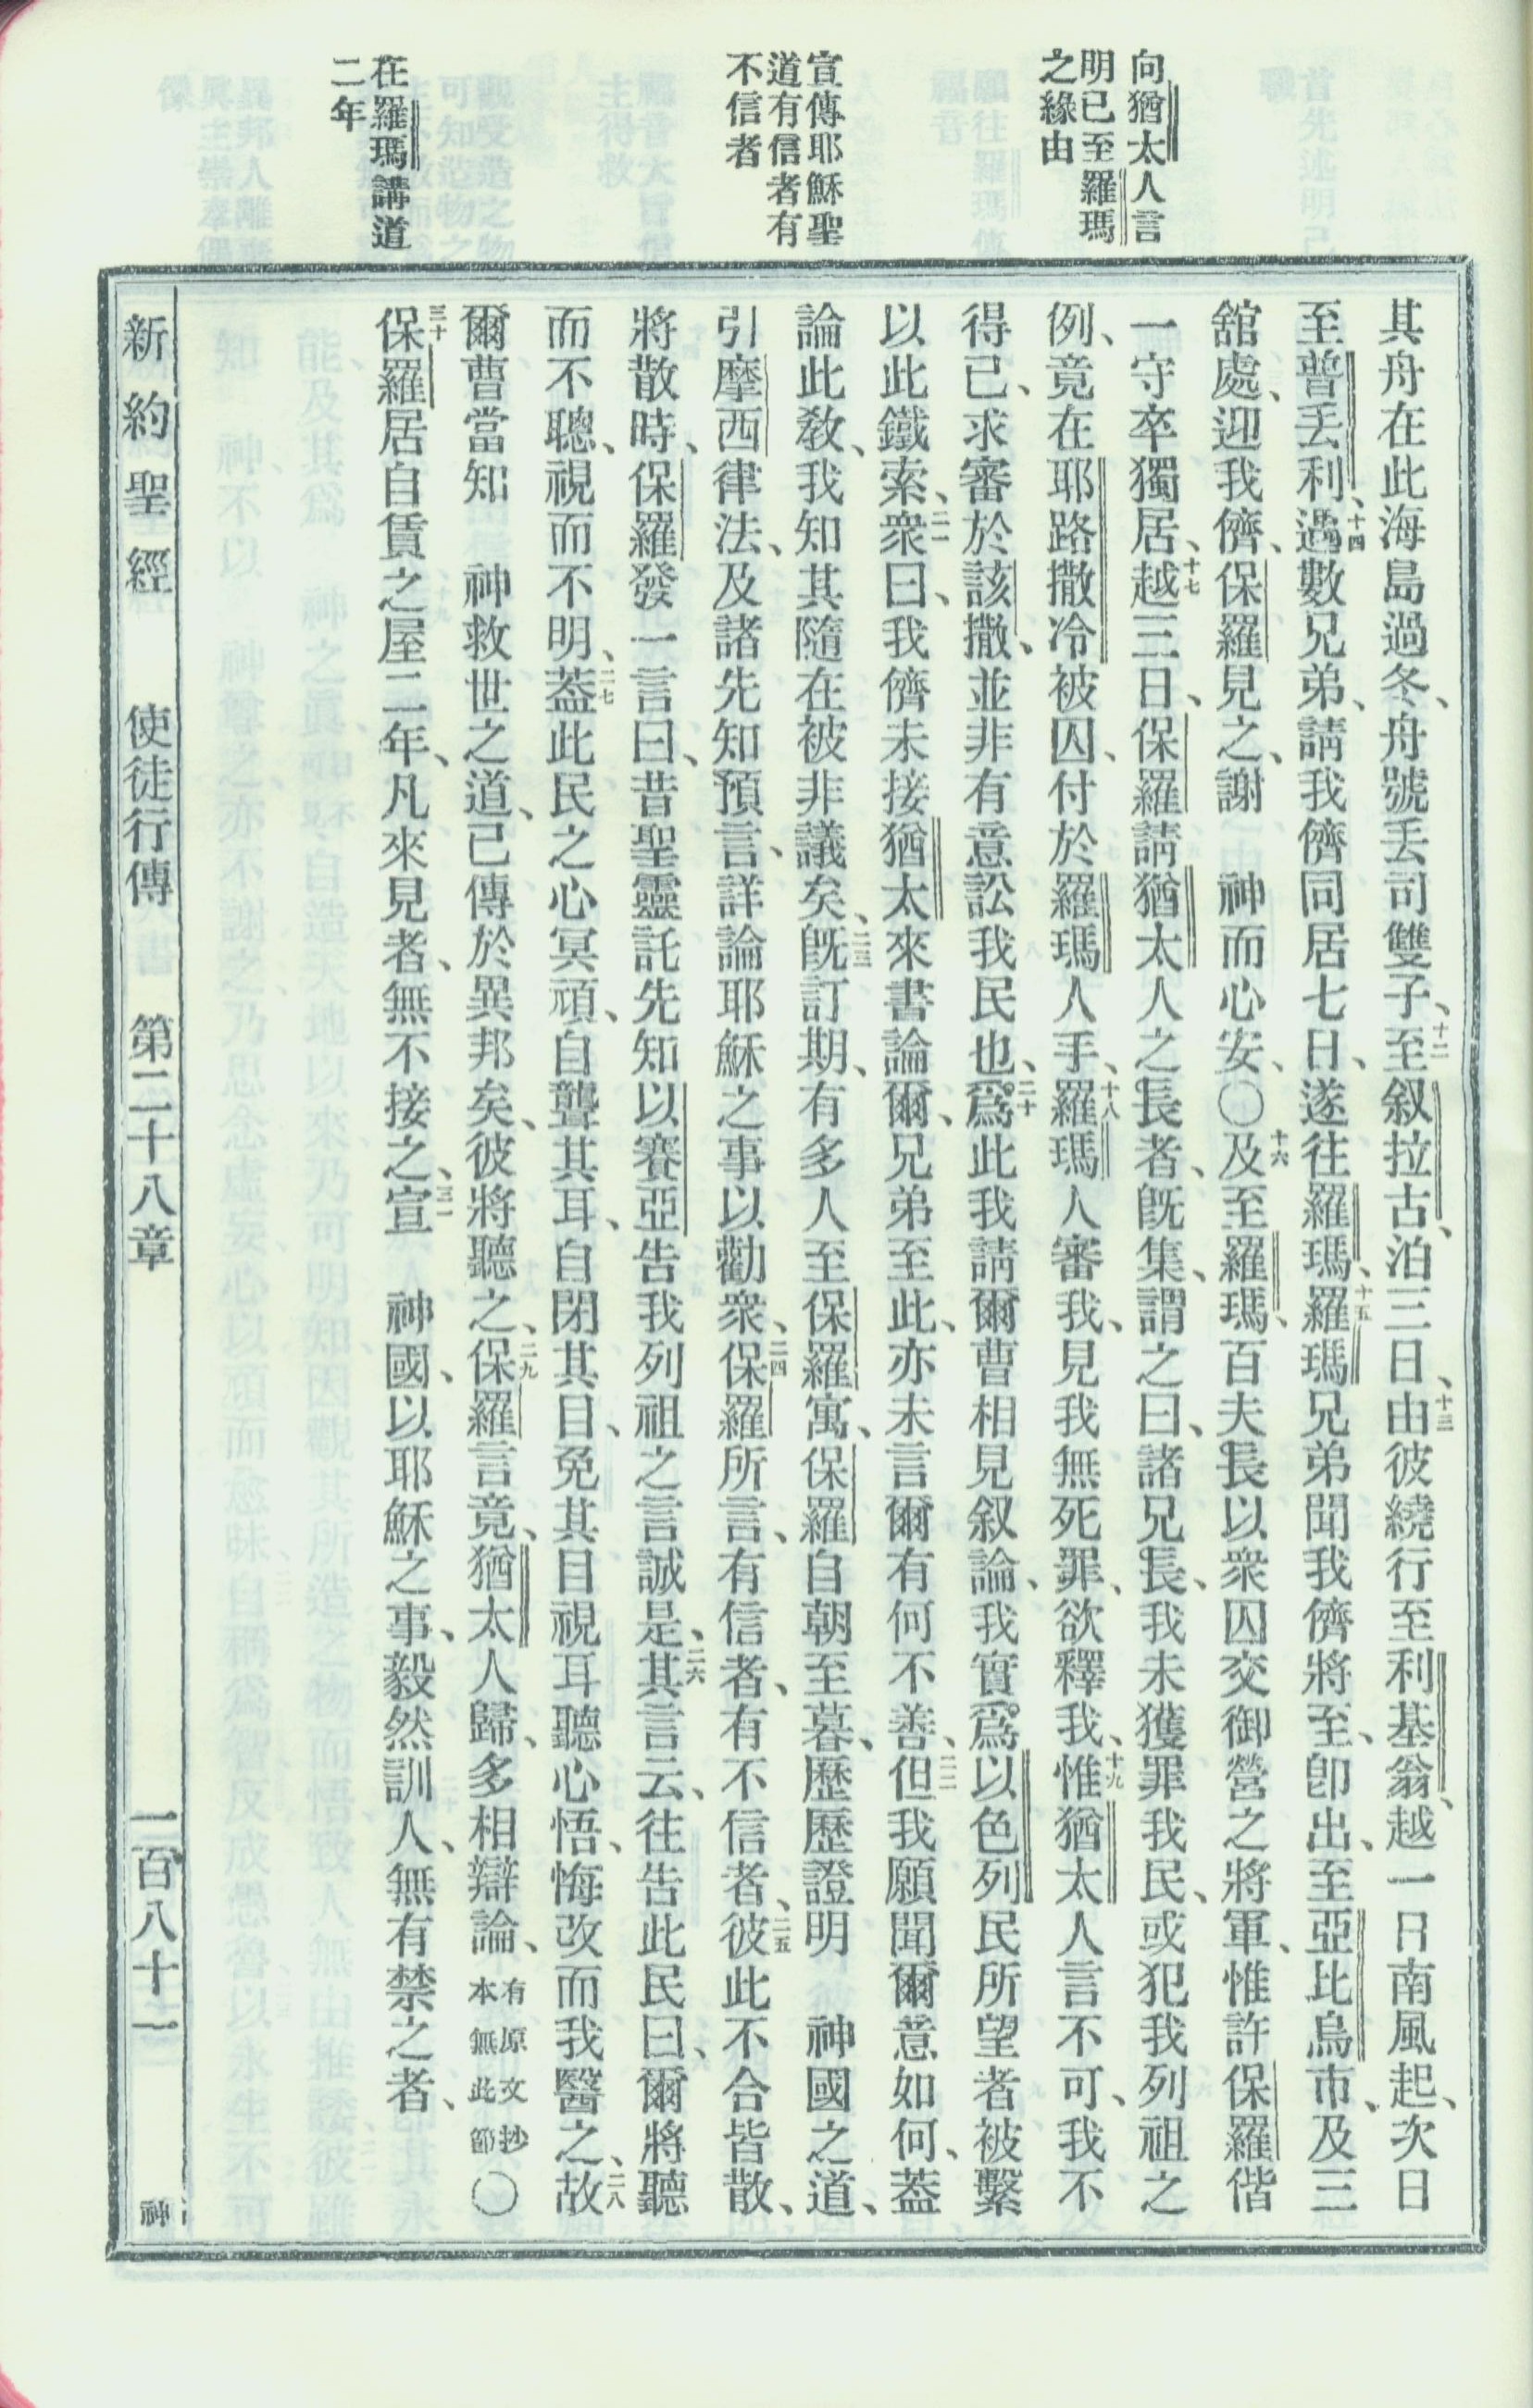 向猶太人言
明已至羅瑪
之緣由
宣傳耶穌聖
道有信者有
不信者
在羅瑪講道
二年
其舟在此海島過冬、舟號丟司雙子、十二至叙拉古、泊三日、十三由彼繞行至利基翁、越一日南風起、次日
至普丟利、十四遇數兄弟、請我儕同居七日、遂往羅瑪、十五羅瑪兄弟聞我儕將至、卽出、至亞比烏市、及三
舘處、迎我儕、保羅見之、謝 神而心安、〇十六及至羅瑪、百夫長以衆囚交御營之將軍、惟許保羅偕
一守卒獨居、十七越三日、保羅請猶太人之長者、旣集、謂之曰、諸兄長、我未獲罪我民、或犯我列祖之
例、竟在耶路撒冷被囚、付於羅瑪人手、十八羅瑪人審我、見我無死罪、欲釋我、十九惟猶太人言不可、我不
得已、求審於該撒、並非有意訟我民也、二十爲此我請爾曹相見叙論、我實爲以色列民所望者被繫
以此鐵索、二一衆曰、我儕未接猶太來書論爾、兄弟至此、亦未言爾有何不善、二二但我願聞爾意如何、蓋
論此敎、我知其隨在被非議矣、二三旣訂期、有多人至保羅寓、保羅自朝至暮、歷歷證明 神國之道、
引摩西律法、及諸先知預言、詳論耶穌之事以勸衆、二四保羅所言、有信者、有不信者、二五彼此不合皆散、
將散時、保羅發一言曰、昔聖靈託先知以賽亞告我列祖之言誠是、二六其言云、往告此民曰、爾將聽
而不聰、視而不明、二七蓋此民之心冥頑、自聾其耳、自閉其目、免其目視耳聽心悟、悔改而我醫之、二八故
爾曹當知 神救世之道、已傳於異邦矣、彼將聽之、二九保羅言竟、猶太人歸、多相辯論、有原文抄本無此節〇
三十保羅居自賃之屋二年、凡來見者、無不接之、三一宣 神國、以耶穌之事、毅然訓人、無有禁之者、
新約聖經 使徒行傳 第二十八章 一百八十一 神